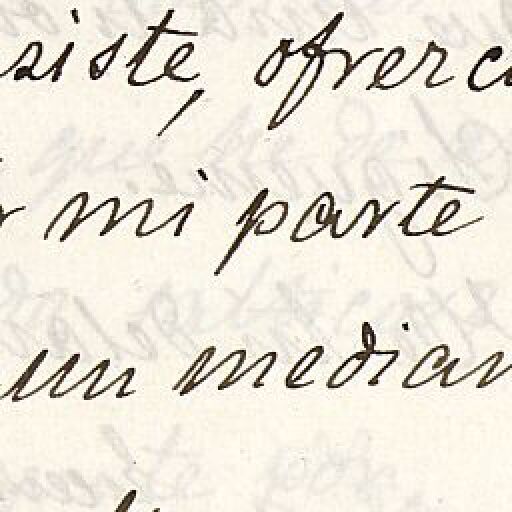 siste, ofrerc
mi parte
un median